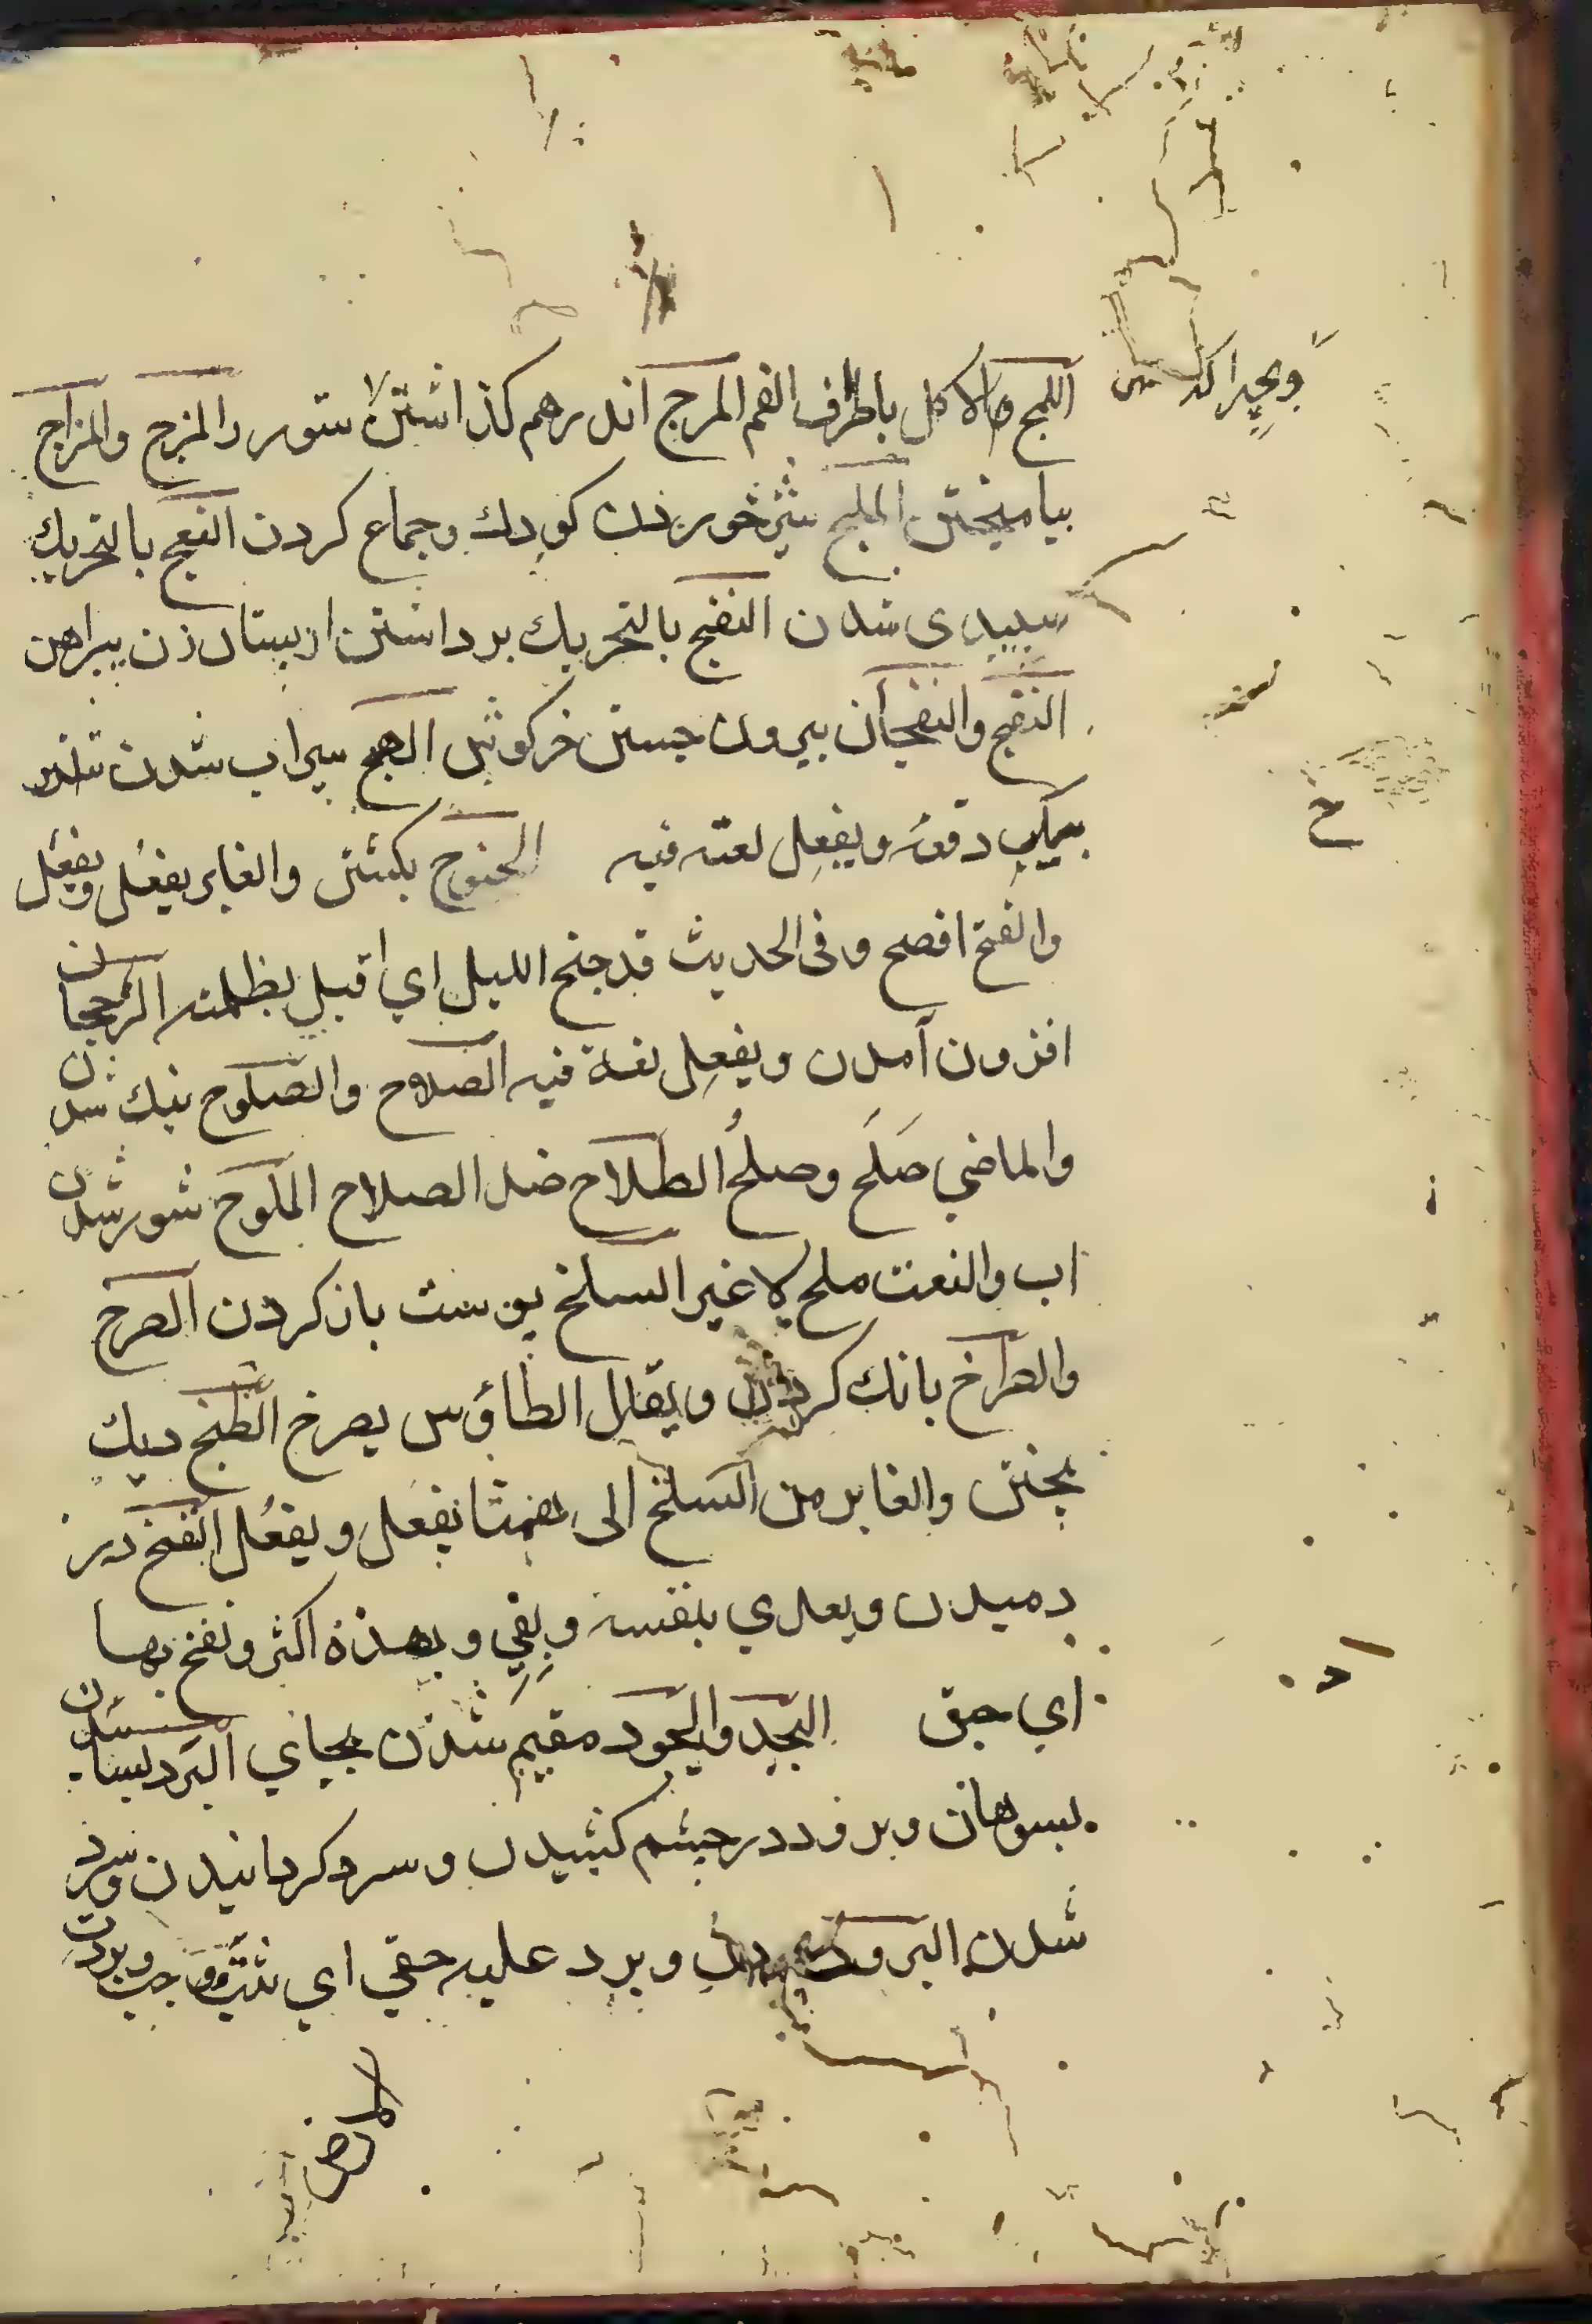 اللمج والاكل باطراف الفم المرج اندرهم كذاشتن ستور المزج والمزاج
بياميختن الملج شيرخوردن كودك وجماع كردن النعج بالتحريك
سپیدی شدن النفج بالتحريك برداشتن پستان زن پیراهن
النفج والنفجان بيرون جستن خركوش الهمج سیراب شدن شتر
بيكبر دفعه ويفعل لغته فيه الجنوح بكشتن والغابر يفعل ويفعل
والفتح افصح وفى الحديث قد جنح الليل اي اقبل بظلمته الرجحان
افزون آمدن ويفعل لغة فيه الصلاح والصلوح نيك شدن
والماضي صلَح وصلُح الطلاح ضد الصلاح الملوح شور شدن
اب والنعت ملح لا غير السلخ پوست باز كردن الصرخ
والصراخ بانك كردن ويقال الطاؤس يصرخ الطبخ ديك
پختن والغابر من السلخ الى يفعل ويفعل النفخ در
دميدن ويعدي بنفسه وبفي وبهذه اكثر ونفخ بها
اي حبق البجد والبجود مقيم شدن بجاي البرد
بسوهان وبرود در چشم كشيدن وسرد كردانيدن وسرد
شدن البرود وبرد عليه حقي اي ثبت ووجب وبردت
الارض
ح
د